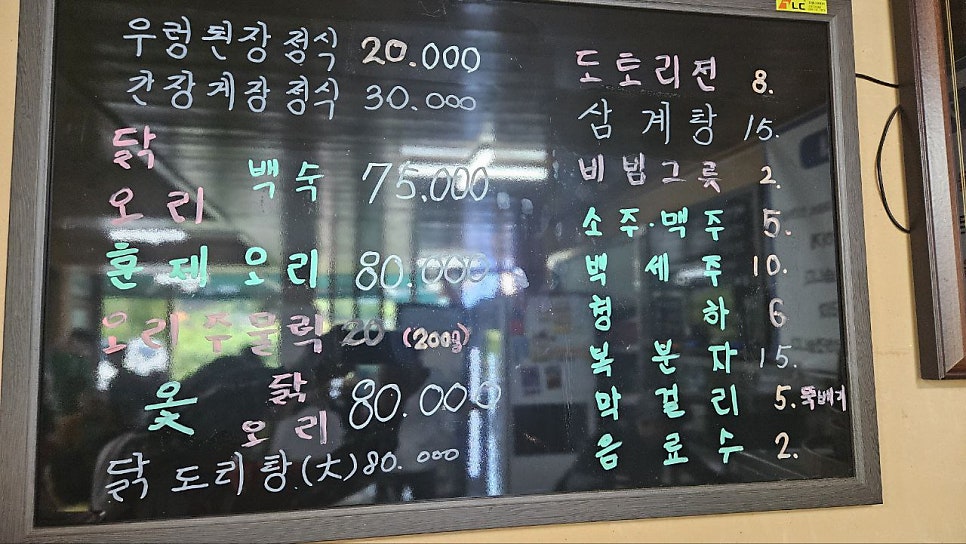 우렁된장정식 20.000
간장게장정식 30.000
닭
오리 백숙 75.000
훈제오리 80.000
오리주물럭 20 (200g)
옻 닭
오리 80.000
닭도리탕.(大) 80.000
LC
도토리전 8.
삼계탕 15.
비빔그릇 2.
소주.맥주 5.
백세주 10.
형하 6
복분자 15.
막걸리 5. 뚝배기
음료수 2.